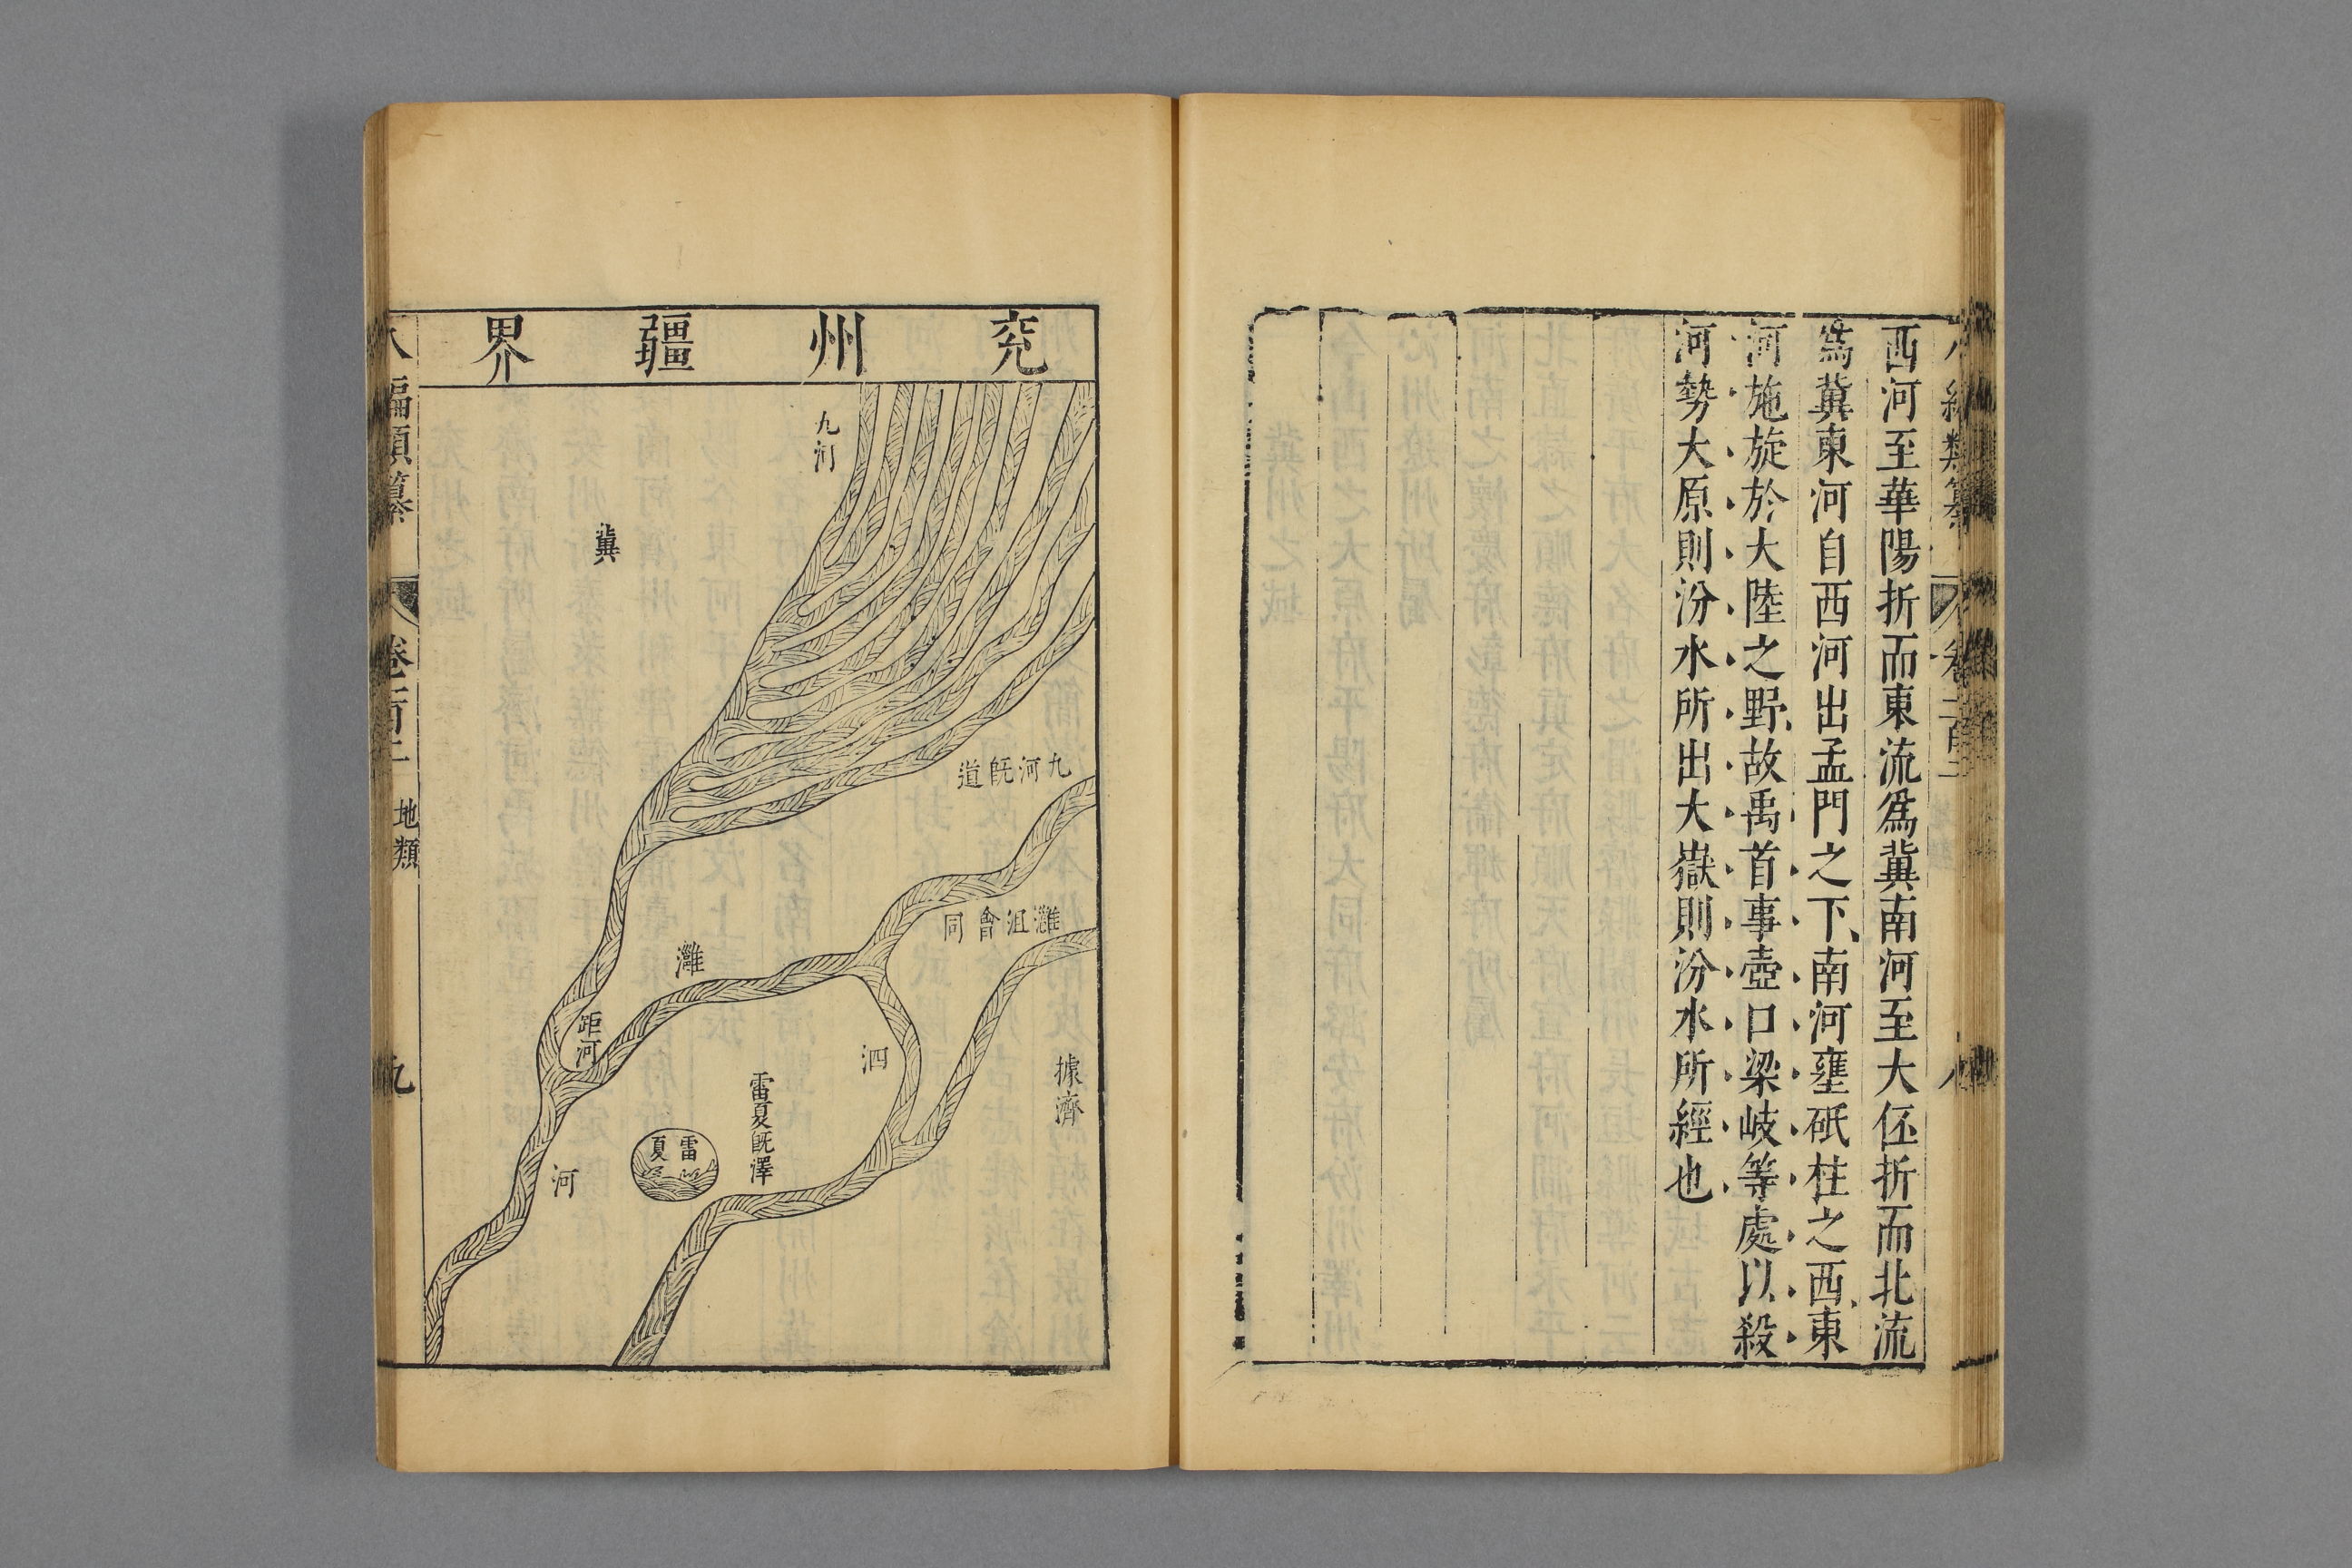 西河至華陽折而東流爲冀南河至大伾折而北流
爲冀東河自西河出孟門之下南河壅砥柱之西東
河施旋於大陸之野故禹首事壺口梁岐等處以殺
河勢大原則汾水所出大嶽則汾水所經也
兖州疆界
九河
冀
九河既道
灉沮會同
灉
距河
泗
據濟
雷夏既澤
雷夏
河
編類纂
地類
九